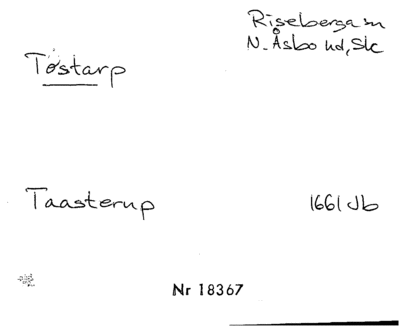 Riseberga sn
N. Åsbo hd, Sk
Tostarp
Taasterup
1661 Jb
Nr 18367